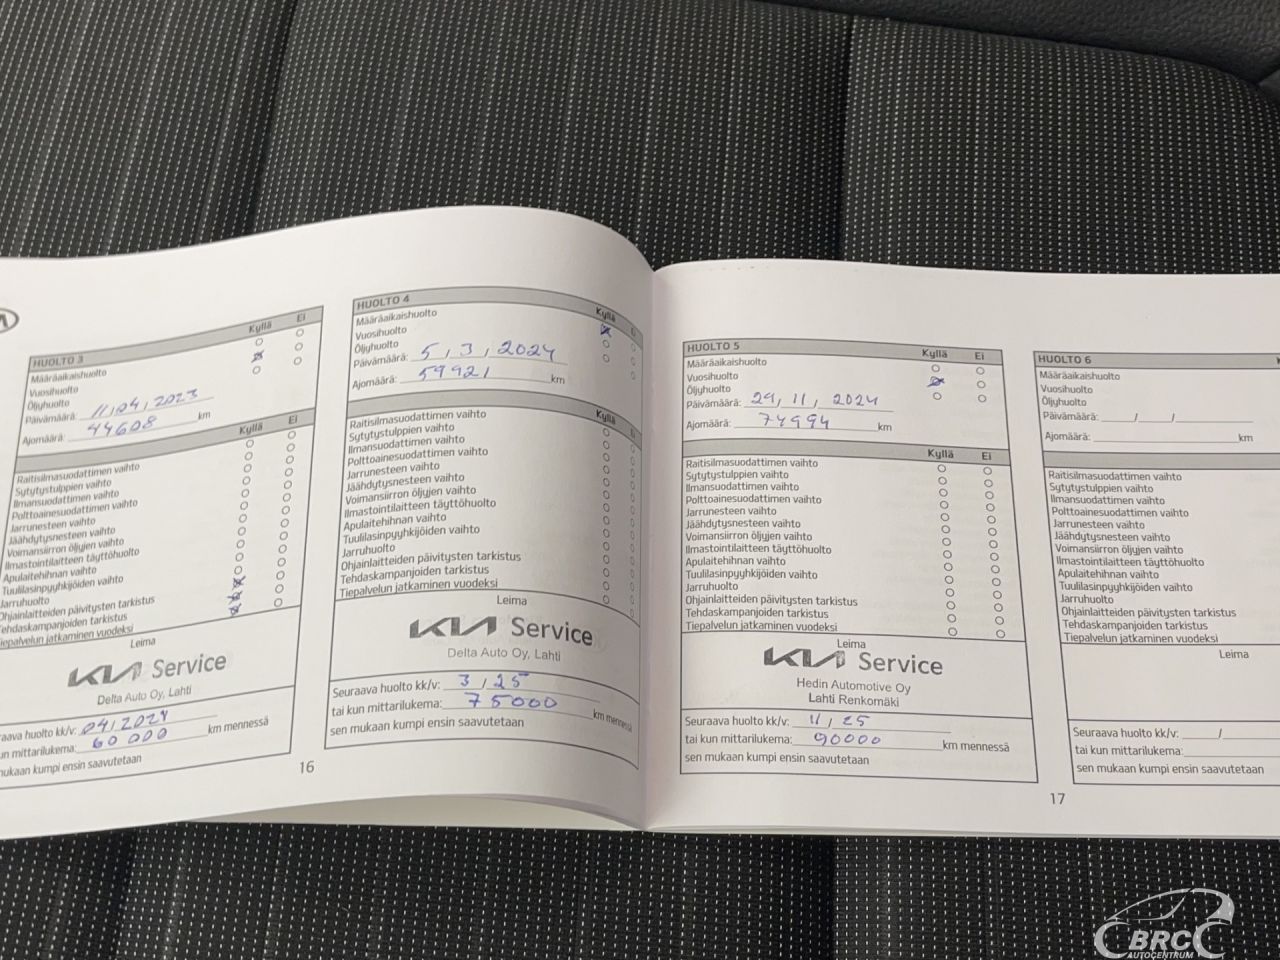 HUOLTO 3
Kyllä Ei
Määräaikaishuolto
Vuosihuolto
Öljyhuolto
Päivämäärä: 11,04,2023
Ajomäärä: 44608 km
Kyllä Ei
Raitisilmasuodattimen vaihto
Sytytystulppien vaihto
Ilmansuodattimen vaihto
Polttoainesuodattimen vaihto
Jarrunesteen vaihto
Jäähdytysnesteen vaihto
Voimansiirron öljyjen vaihto
Ilmastointilaitteen täyttöhuolto
Apulaitehihnan vaihto
Tuulilasinpyyhkijöiden vaihto
Jarruhuolto
Ohjainlaitteiden päivitysten tarkistus
Tehdaskampanjoiden tarkistus
Tiepalvelun jatkaminen vuodeksi
Leima
KIA Service
Delta Auto Oy, Lahti
raava huolto kk/v: 04,2024
un mittarilukema: 60 000 km mennessä
mukaan kumpi ensin saavutetaan
HUOLTO 4
Kyllä Ei
Määräaikaishuolto
Vuosihuolto
Öljyhuolto
Päivämäärä: 5,3,2024
Ajomäärä: 59921 km
Kyllä
Raitisilmasuodattimen vaihto
Sytytystulppien vaihto
Ilmansuodattimen vaihto
Polttoainesuodattimen vaihto
Jarrunesteen vaihto
Jäähdytysnesteen vaihto
Voimansiirron öljyjen vaihto
Ilmastointilaitteen täyttöhuolto
Apulaitehihnan vaihto
Tuulilasinpyyhkijöiden vaihto
Jarruhuolto
Ohjainlaitteiden päivitysten tarkistus
Tehdaskampanjoiden tarkistus
Tiepalvelun jatkaminen vuodeksi
Leima
KIA Service
Delta Auto Oy, Lahti
Seuraava huolto kk/v: 3,25
tai kun mittarilukema: 75000 km mennessä
sen mukaan kumpi ensin saavutetaan
16
HUOLTO 5
Kyllä Ei
Määräaikaishuolto
Vuosihuolto
Öljyhuolto
Päivämäärä: 29,11,2024
Ajomäärä: 74994 km
Kyllä Ei
Raitisilmasuodattimen vaihto
Sytytystulppien vaihto
Ilmansuodattimen vaihto
Polttoainesuodattimen vaihto
Jarrunesteen vaihto
Jäähdytysnesteen vaihto
Voimansiirron öljyjen vaihto
Ilmastointilaitteen täyttöhuolto
Apulaitehihnan vaihto
Tuulilasinpyyhkijöiden vaihto
Jarruhuolto
Ohjainlaitteiden päivitysten tarkistus
Tehdaskampanjoiden tarkistus
Tiepalvelun jatkaminen vuodeksi
Leima
KIA Service
Hedin Automotive Oy
Lahti Renkomäki
Seuraava huolto kk/v: 11/25
tai kun mittarilukema: 90000 km mennessä
sen mukaan kumpi ensin saavutetaan
HUOLTO 6
Määräaikaishuolto
Vuosihuolto
Öljyhuolto
Päivämäärä: / /
Ajomäärä: km
Raitisilmasuodattimen vaihto
Sytytystulppien vaihto
Ilmansuodattimen vaihto
Polttoainesuodattimen vaihto
Jarrunesteen vaihto
Jäähdytysnesteen vaihto
Voimansiirron öljyjen vaihto
Ilmastointilaitteen täyttöhuolto
Apulaitehihnan vaihto
Tuulilasinpyyhkijöiden vaihto
Jarruhuolto
Ohjainlaitteiden päivitysten tarkistus
Tehdaskampanjoiden tarkistus
Tiepalvelun jatkaminen vuodeksi
Leima
Seuraava huolto kk/v: /
tai kun mittarilukema:
sen mukaan kumpi ensin saavutetaan
17
BRC
AUTOCENTRUM